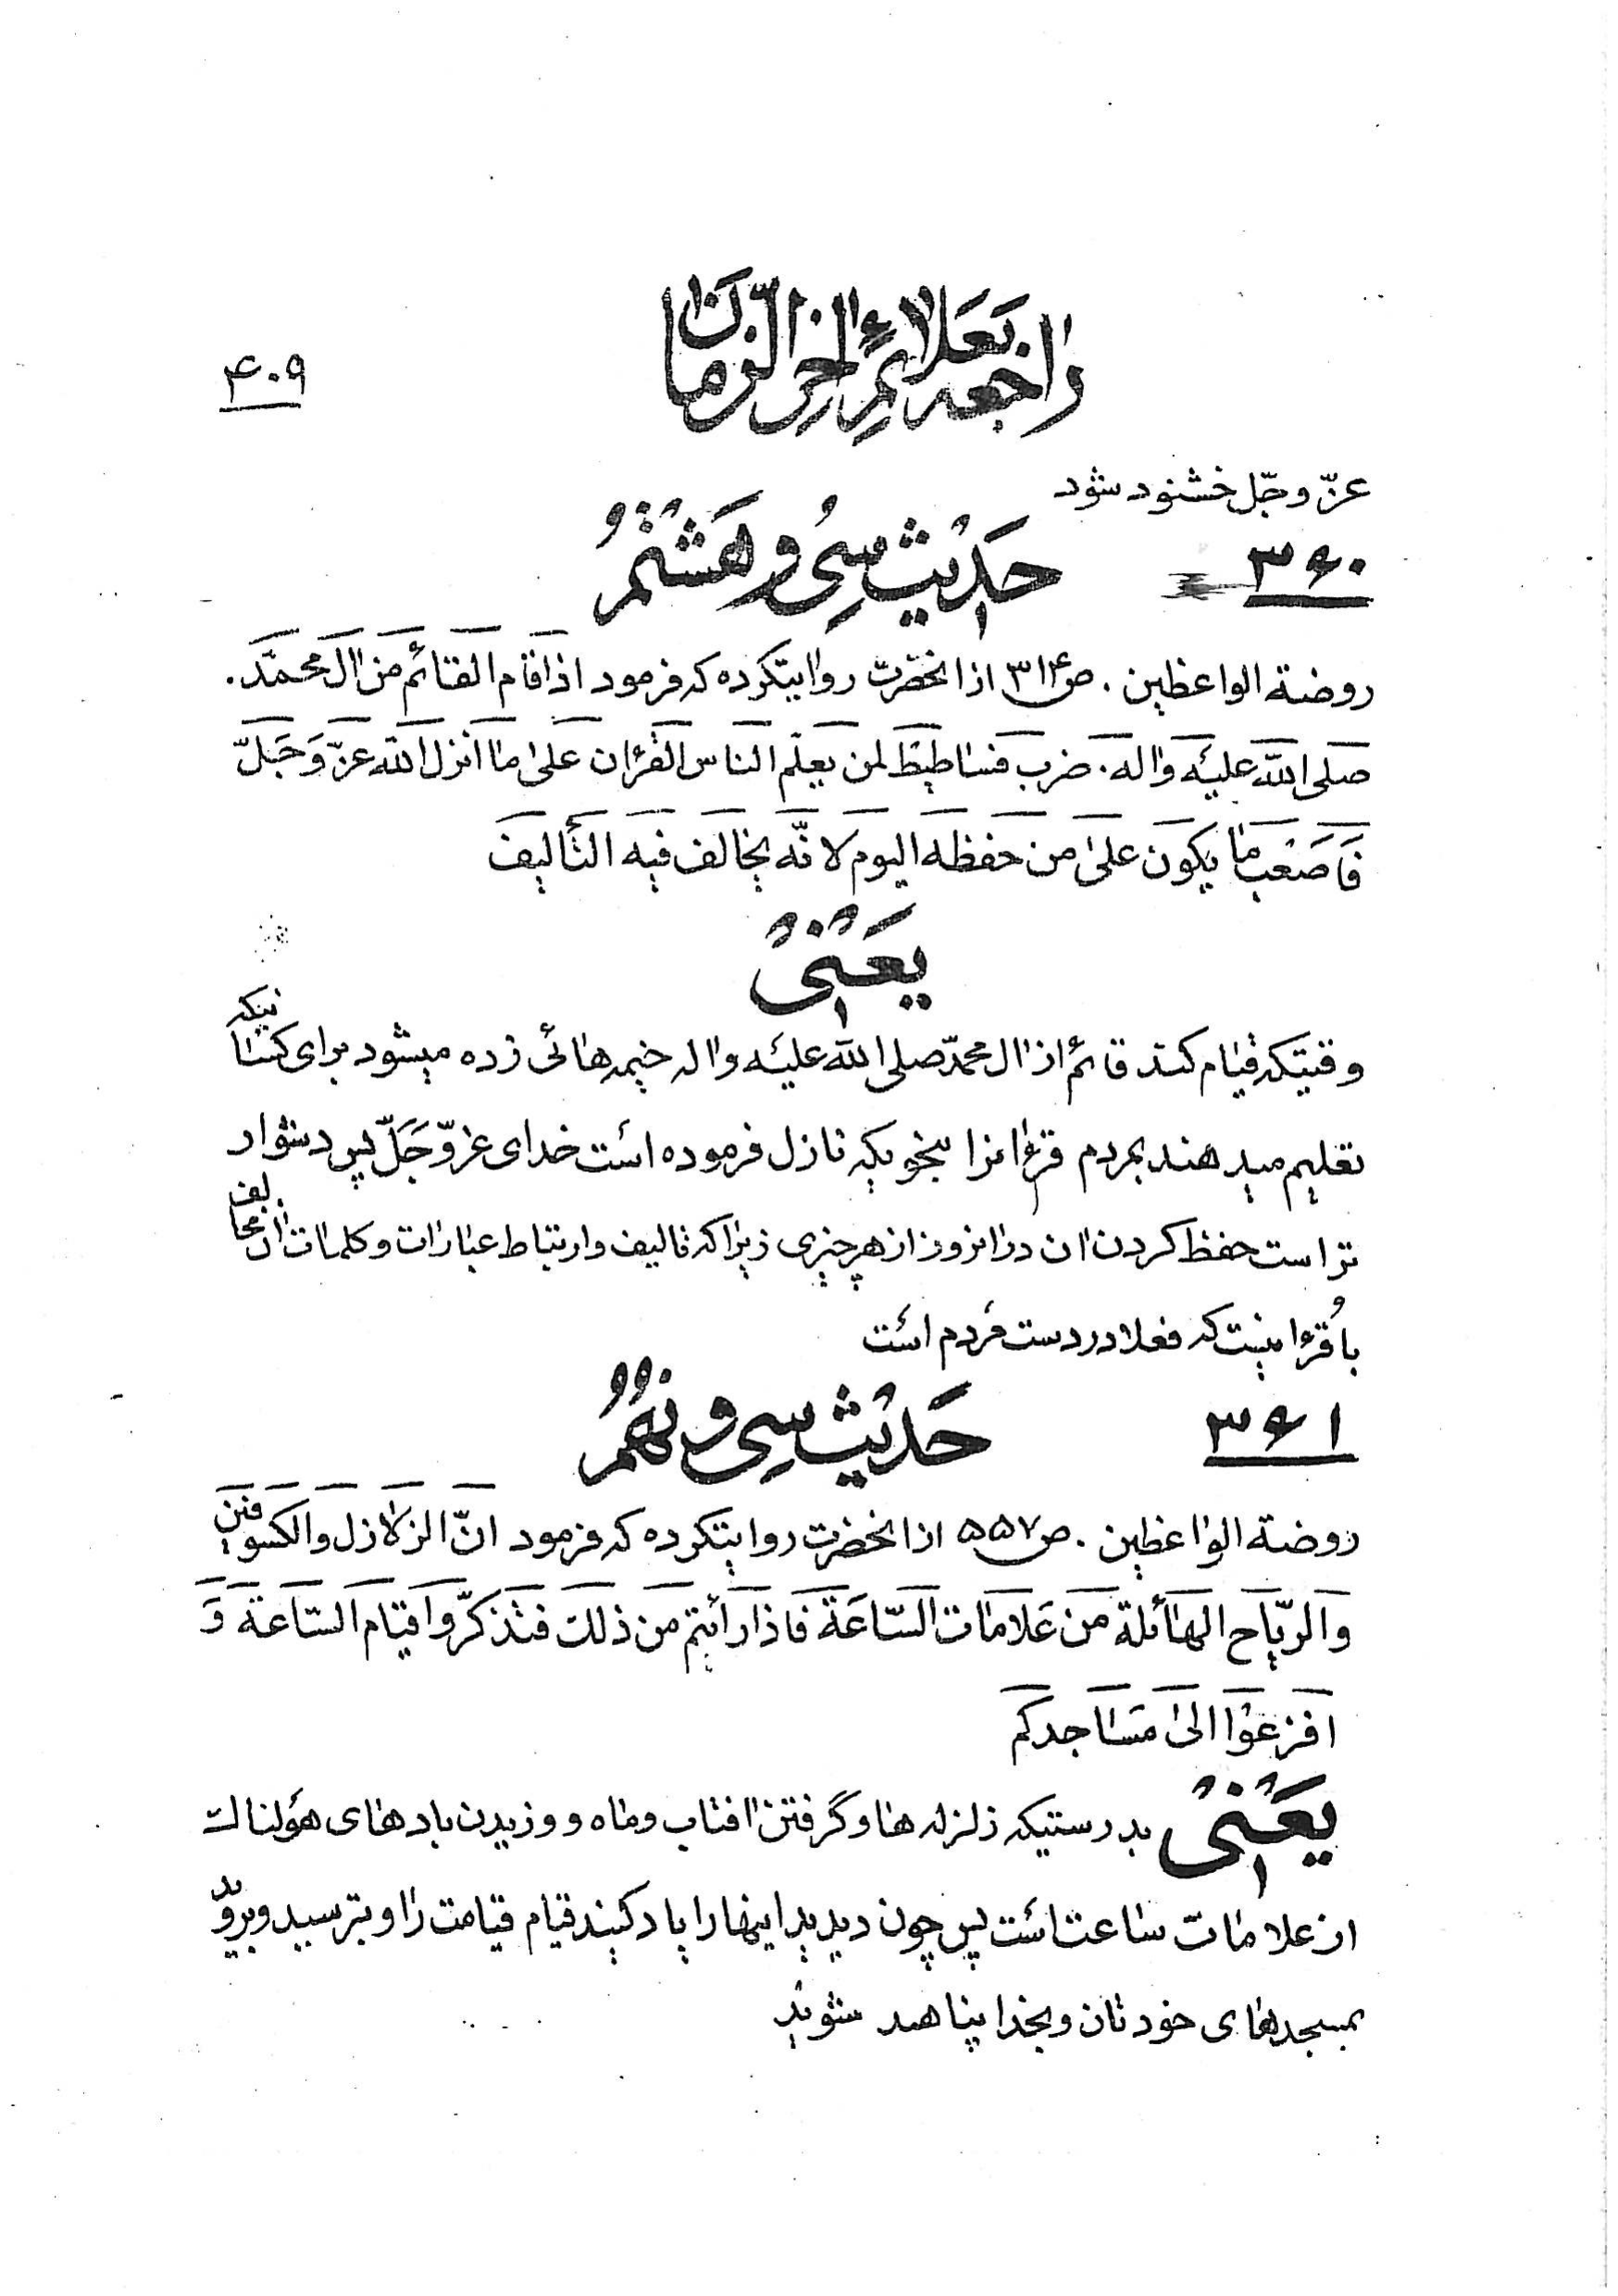 راجعه بعلائم آخر الزمان
۴۰۹
عزّ وجلّ خشنود شود
۳۶۰
حدیث سی و هشتم
روضة الواعظین . ص۳۱۴ از آنحضرت روایتکرده که فرمود اذا قام القائم من آل محمّد .
صلی الله علیه و اله . ضرب فساطیط لمن یعلّم الناس القرآن علی ما انزل الله عزّ وَ جَلّ
فَاَصْعب ما یکون علی من حفظه الیوم لانّه یخالف فیه التألیف
یَعْنی
وقتیکه قیام کند قائم از آل محمّد صلی الله علیه و اله خیمه هائی زده میشود برای کسانیکه
تعلیم میدهند بمردم قرآنرا بنحویکه نازل فرموده است خدای عزّ و جَلّ پس دشوار
تر است حفظ کردن آن در انروز از هر چیزی زیرا که تالیف و ارتباط عبارات و کلمات آن مخالف
با قرآنیست که فعلا در دست مردم است
۳۶۱
حَدیث سی و نهُم
روضة الواعظین . ص۵۵۷ از آنحضرت روایتکرده که فرمود انّ الزلازل و الکسوفین
و الریاح الهائلة من عَلامات السّاعَة فاذا رائیتم من ذلک فتذکّروا قیام الساعة وَ
افزعوا الی مساجدکم
یَعْنی بدرستیکه زلزله ها و گرفتن آفتاب و ماه و وزیدن بادهای هولناک
از علامات ساعت است پس چون دیدید اینها را یاد کنید قیام قیامت را و بترسید و بروید
بمسجدهای خودتان و بخدا پناهنده شوید